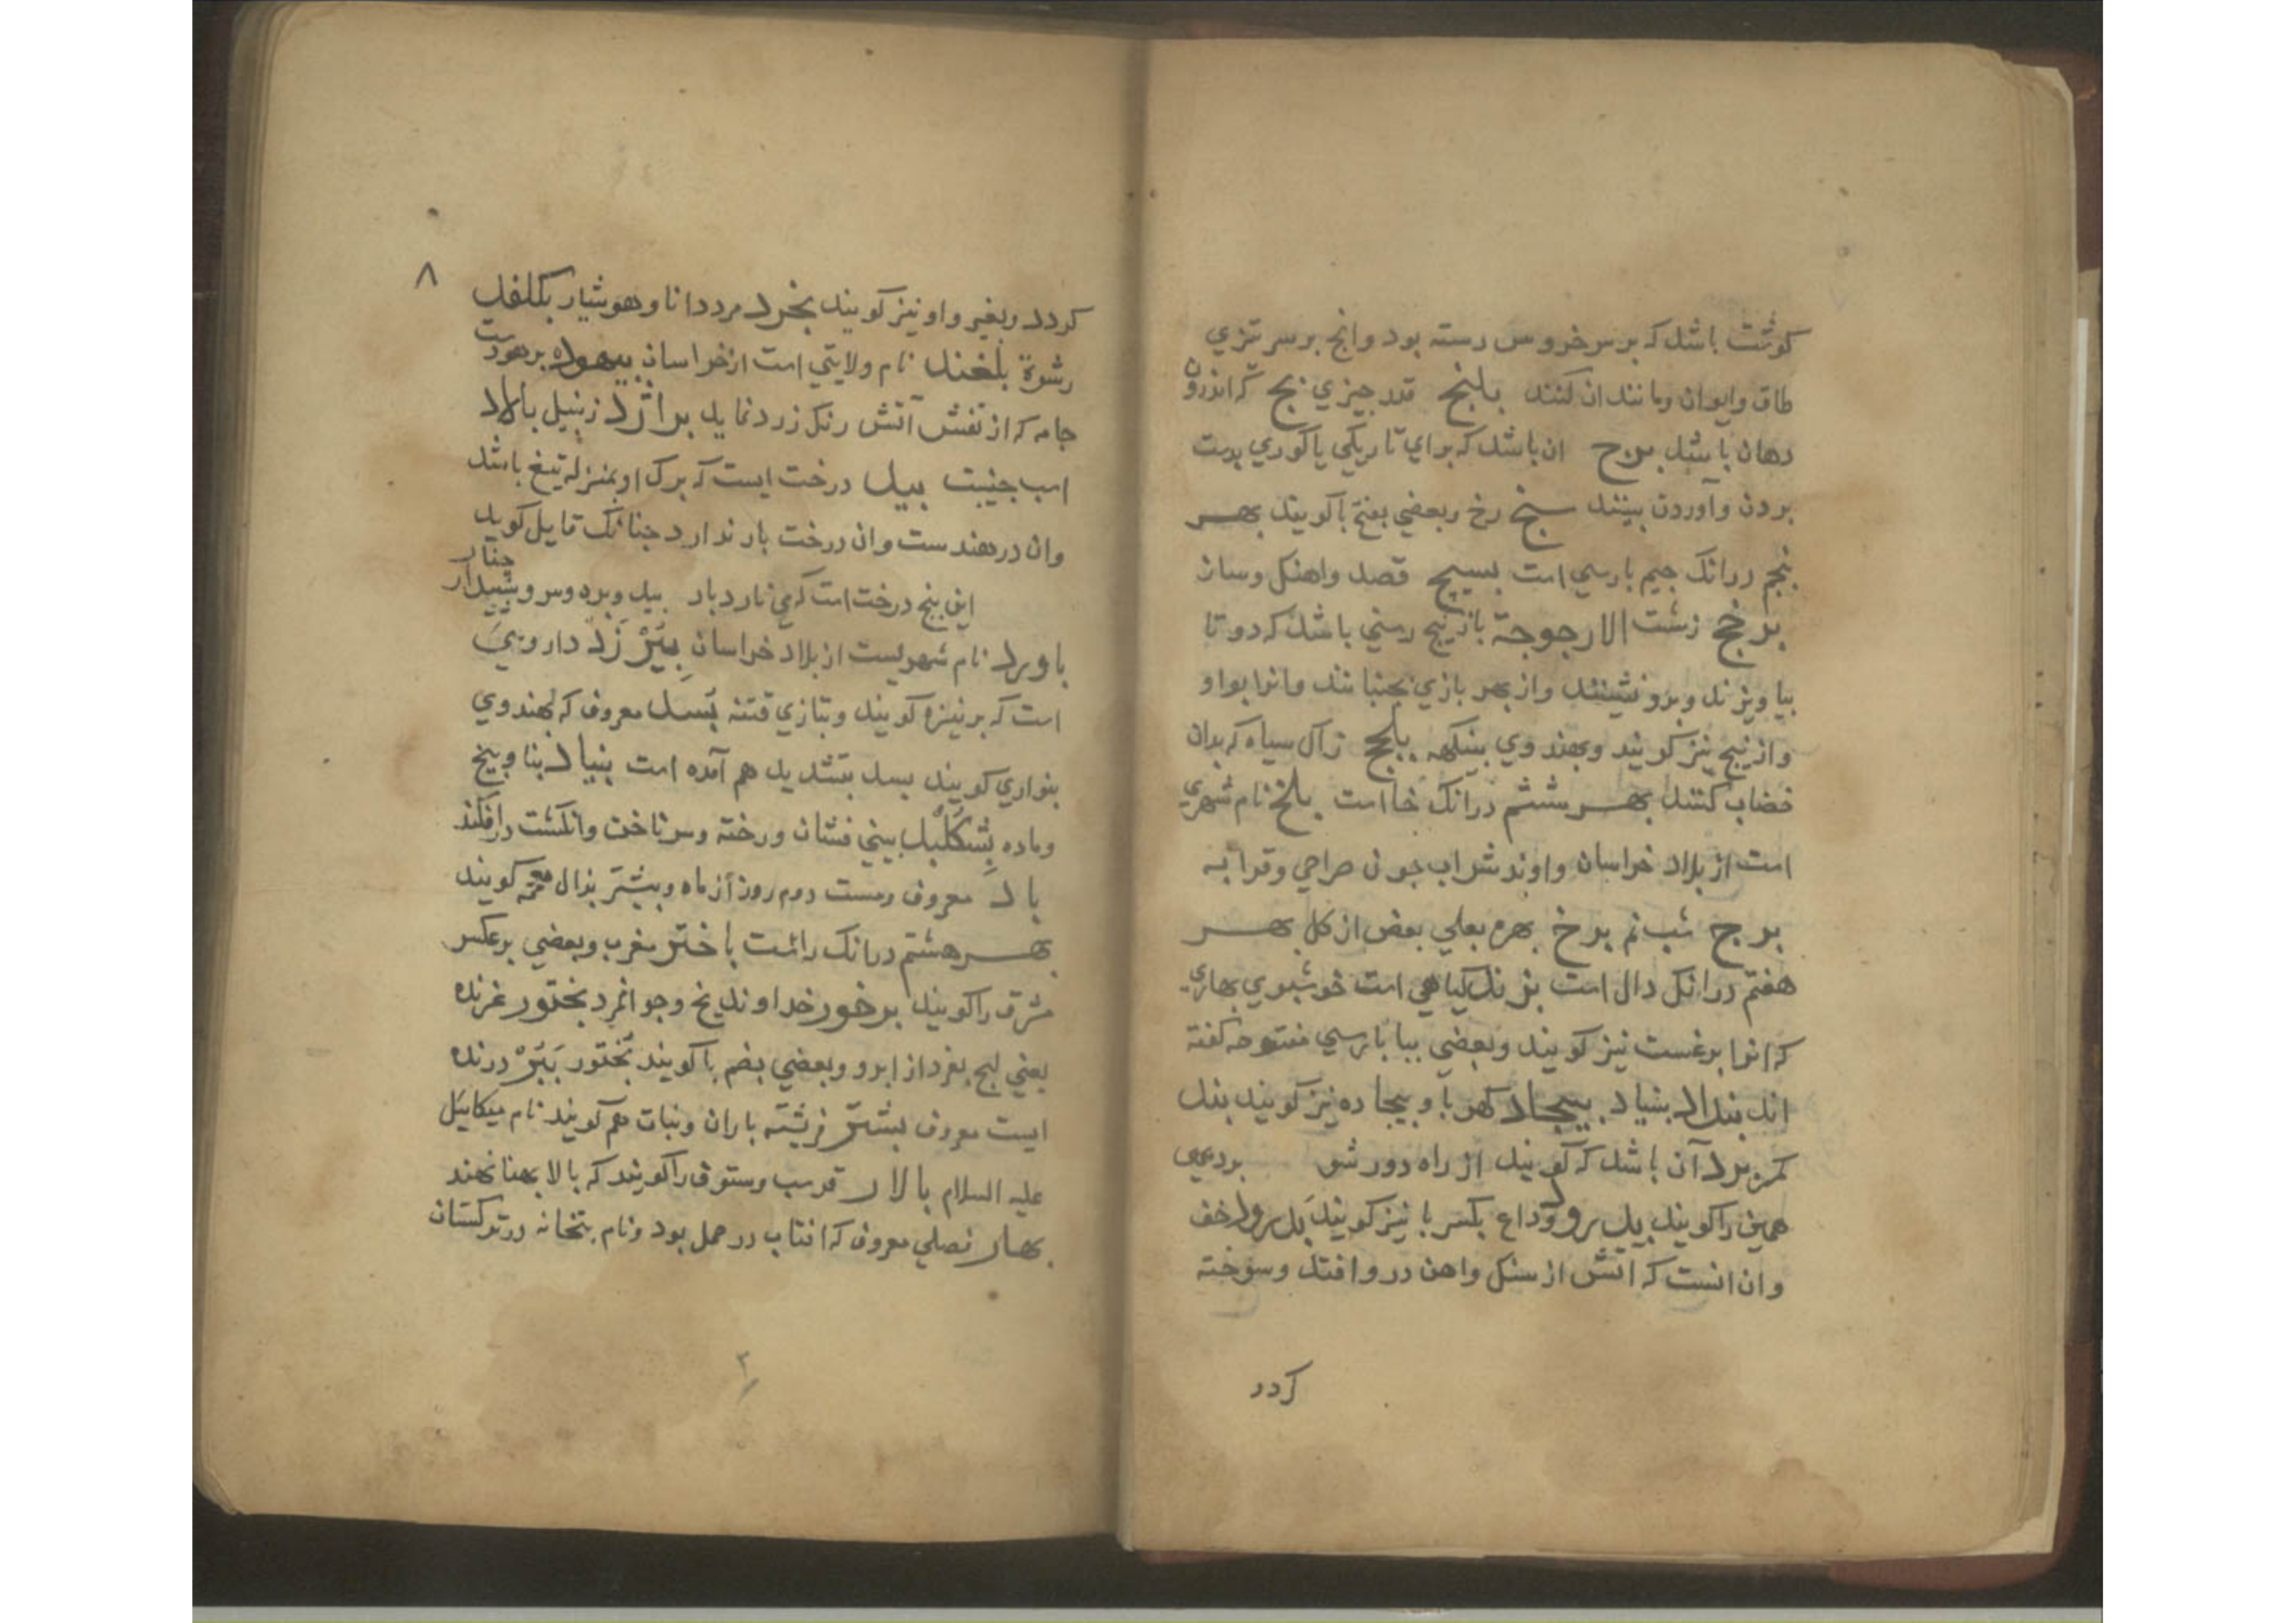 کوشت باشد که بر سر خروس رسته بود وانچ بر سر تیزي
طاق وایوان ومانند ان کنند بلنج قدر چیزي بج که اندرون
دهان باشد برح ان باشد که براي تاریکي یا کوري بدست
بردن واوردن بینند سبح رخ وبعضي بفتح با کویند بهر
پنجم درانک جیم پارسي است بسیچ قصد واهنک وسان
برخج زشت الارجوجة بازنیج رسني باشد که دو تا
بیاویزند وبرو نشینند واز بهر بازي بجنبانند وانرا بواو
وازنیج نیز کویند وبهندوي بینکهه بلج زاک سیاه که بدان
خضاب کنند بهر ششم درانک خا است بلخ نام شهري
است از بلاد خراسان واوند شراب چون صراحي وقرابه
برخ شب نم برخ بهره بعلي بعض از کل بهر
هفتم درانک دال است بژند کیاهي است خوشبوي بهاري
که انرا برغست نیز کویند وبعضي ببا پارسي مفتوحه کفته
اند بنداد بنیاد بیجاد کهربا وبیجاده نیز کویند بند
کمر برد آن باشد که کویند از راه دور شو بردیمي
همین را کویند بدرود وداع بکسر با نیز کویند بدرود خف
وان انست که اتش از سنک واهن درو افتد وسوخته
کردد
۸
کردد وبغیر واو نیز کویند بخرد مرد دانا وهوشیار بکلفد
رشوة بلغند نام ولایتي است از خراسان بیهوده برهود ست
جامه که از تفش آتش رنک زرد نماید براژد زنبیل بالاد
اسب جنیبت بید درخت ایست که برک او بمنزله تیغ باشد
وان در هندست وان درخت بار ندارد چنانک قایل کوید
این پنج درخت است که مي نارد بار بید وبرد وسرو وسپیدار چنار
باورد نام شهریست از بلاد خراسان بیرزد داروئي
است که بریزه کویند وبتازي قتنه بسد معروف که بهندوي
بنواري کویند بسد بتشدید هم آمده است بنیاد بنا وبیخ
وماده بشکلید بیني فشان ورخته وسر ناخن وانکشت درافکند
باد معروف وبیست دوم روز از ماه وبیشتر بذال معجمه کویند
بهر هشتم درانک راست باختر مغرب وبعضي برعکس
مشرق را کویند برخور خداوند یخ وجوانمرد بختور غرنده
یعني لبج بغرد از ابر و وبعضي بضم با کویند بختور ببر درنده
ایست معروف بشتر فرشته باران ونبات هم کویند نام میکائیل
علیه السلام بالار فرسب وستون را کویند که بالا بهنا نهند
بهار فصلي معروف که افتاب در حمل بود ونام بتخانه در ترکستان
۲